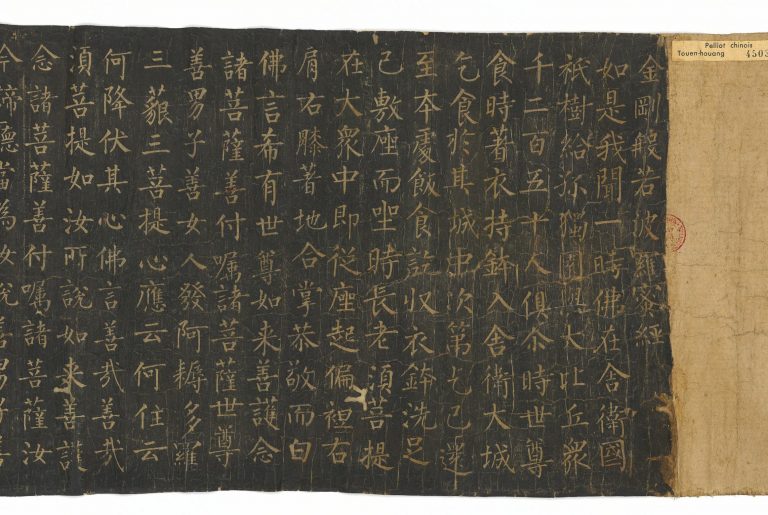 Pelliot chinois
Touen-houang 4503
金剛般若波羅蜜經
如是我聞一時佛在舍衛國
祇樹給孤獨園與大比丘衆
千二百五十人俱尒時世尊
食時著衣持鉢入舍衛大城
乞食於其城中次第乞已還
至本處飯食訖収衣鉢洗足
已敷座而坐時長老須菩提
在大衆中即從座起偏袒右
肩右膝著地合掌恭敬而白
佛言希有世尊如来善護念
諸菩薩善付囑諸菩薩世尊
善男子善女人發阿耨多羅
三藐三菩提心應云何住云
何降伏其心佛言善哉善哉
須菩提如汝所說如来善護
念諸菩薩善付囑諸菩薩汝
今諦聽當為汝說善男子善